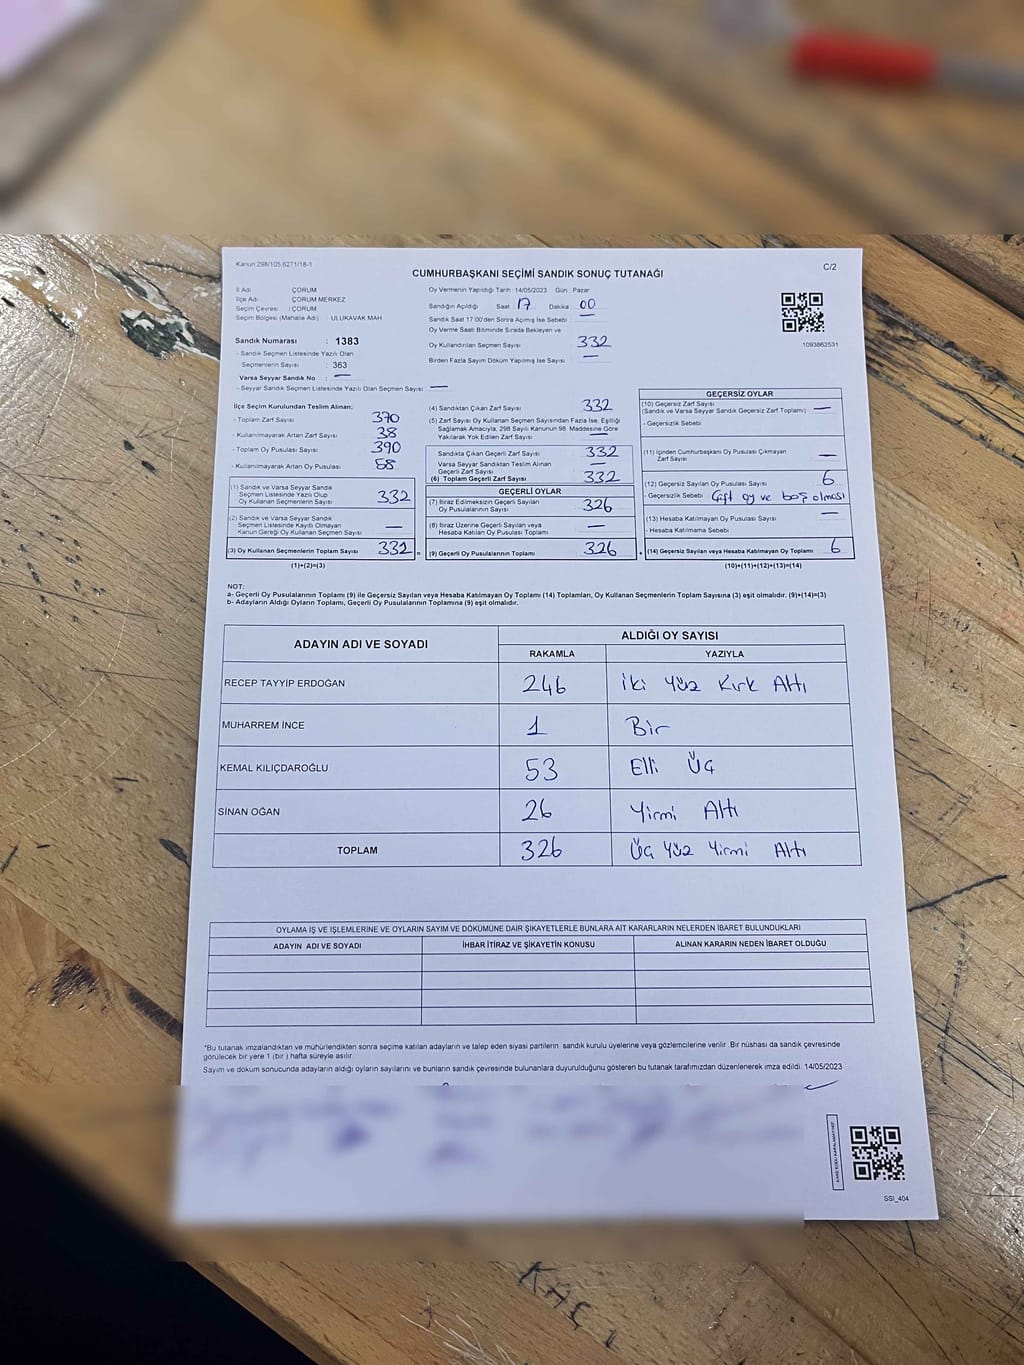 Kanun:298/105 6271/18-1
C/2
CUMHURBAŞKANI SEÇİMİ SANDIK SONUÇ TUTANAĞI
İl Adı ÇORUM
İlçe Adı ÇORUM MERKEZ
Seçim Çevresi : ÇORUM
Seçim Bölgesi (Mahalle Adı) : ULUKAVAK MAH
Sandık Numarası : 1383
- Sandık Seçmen Listesinde Yazılı Olan
Seçmenlerin Sayısı : 363
Varsa Seyyar Sandık No : —
- Seyyar Sandık Seçmen Listesinde Yazılı Olan Seçmen Sayısı : —
Oy Vermenin Yapıldığı Tarih : 14/05/2023 Gün : Pazar
Sandığın Açıldığı Saat : 17 Dakika : 00
Sandık Saat 17:00'den Sonra Açımış İse Sebebi : —
Oy Verme Saati Bitiminde Sırada Bekleyen ve
Oy Kullandırılan Seçmen Sayısı 332
Birden Fazla Sayım Döküm Yapılmış İse Sayısı —
1093862531
İlçe Seçim Kurulundan Teslim Alınan;
- Toplam Zarf Sayısı 370
- Kullanılmayarak Artan Zarf Sayısı 38
- Toplam Oy Pusulası Sayısı 390
- Kullanılmayarak Artan Oy Pusulası 58
(1) Sandık ve Varsa Seyyar Sandık
Seçmen Listesinde Yazılı Olup
Oy Kullanan Seçmenlerin Sayısı 332
(2) Sandık ve Varsa Seyyar Sandık
Seçmen Listesinde Kayıtlı Olmayan
Kanun Gereği Oy Kullanan Seçmen Sayısı —
(3) Oy Kullanan Seçmenlerin Toplam Sayısı 332 =
(1)+(2)=(3)
(4) Sandıktan Çıkan Zarf Sayısı 332
(5) Zarf Sayısı Oy Kullanan Seçmen Sayısından Fazla İse, Eşitliği
Sağlamak Amacıyla, 298 Sayılı Kanunun 98. Maddesine Göre
Yakılarak Yok Edilen Zarf Sayısı —
Sandıkta Çıkan Geçerli Zarf Sayısı 332
Varsa Seyyar Sandıktan Teslim Alınan
Geçerli Zarf Sayısı —
(6) Toplam Geçerli Zarf Sayısı 332
GEÇERLİ OYLAR
(7) İtiraz Edilmeksizin Geçerli Sayılan
Oy Pusulalarının Sayısı 326
(8) İtiraz Üzerine Geçerli Sayılan veya
Hesaba Katılan Oy Pusulası Toplamı —
(9) Geçerli Oy Pusulalarının Toplamı 326 +
GEÇERSİZ OYLAR
(10) Geçersiz Zarf Sayısı
(Sandık ve Varsa Seyyar Sandık Geçersiz Zarf Toplamı) —
- Geçersizlik Sebebi
(11) İçinden Cumhurbaşkanı Oy Pusulası Çıkmayan
Zarf Sayısı —
(12) Geçersiz Sayılan Oy Pusulası Sayısı 6
- Geçersizlik Sebebi Çift oy ve boş olması
(13) Hesaba Katılmayan Oy Pusulası Sayısı —
- Hesaba Katılmama Sebebi
(14) Geçersiz Sayılan veya Hesaba Katılmayan Oy Toplamı 6
(10)+(11)+(12)+(13)=(14)
NOT:
a- Geçerli Oy Pusulalarının Toplamı (9) ile Geçersiz Sayılan veya Hesaba Katılmayan Oy Toplamı (14) Toplamları, Oy Kullanan Seçmenlerin Toplam Sayısına (3) eşit olmalıdır. (9)+(14)=(3)
b- Adayların Aldığı Oyların Toplamı, Geçerli Oy Pusulalarının Toplamına (9) eşit olmalıdır.
ADAYIN ADI VE SOYADI ALDIĞI OY SAYISI
RAKAMLA YAZIYLA
RECEP TAYYİP ERDOĞAN 246 İki Yüz Kırk Altı
MUHARREM İNCE 1 Bir
KEMAL KILIÇDAROĞLU 53 Elli Üç
SİNAN OĞAN 26 Yirmi Altı
TOPLAM 326 Üç Yüz Yirmi Altı
OYLAMA İŞ VE İŞLEMLERİNE VE OYLARIN SAYIM VE DÖKÜMÜNE DAİR ŞİKAYETLERLE BUNLARA AİT KARARLARIN NELERDEN İBARET BULUNDUKLARI
ADAYIN ADI VE SOYADI İHBAR İTİRAZ VE ŞİKAYETİN KONUSU ALINAN KARARIN NEDEN İBARET OLDUĞU
*Bu tutanak imzalandıktan ve mühürlendikten sonra seçime katılan adayların ve talep eden siyasi partilerin, sandık kurulu üyelerine veya gözlemcilerine verilir. Bir nüshası da sandık çevresinde
görülecek bir yere 1 (bir ) hafta süreyle asılır.
Sayım ve döküm sonucunda adayların aldığı oyların sayılarını ve bunların sandık çevresinde bulunanlara duyurulduğunu gösteren bu tutanak tarafımızdan düzenlenerek imza edildi. 14/05/2023
SSI_404